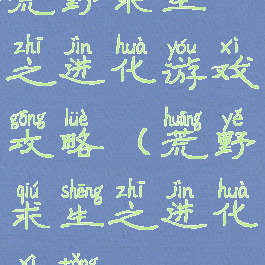 荒野求生
zhī jìn huà yóu xì
之进化游戏
gōng lüè huāng yě
攻略（荒野
qiú shēng zhī jìn huà
求生之进化
xì tǒng